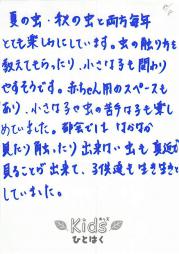 夏の虫・秋の虫と両方毎年
とても楽しみにしています。虫の触り方を
教えてもらったり、小さな子も関わり
やすそうです。赤ちゃん用のスペースも
あり、小さな子や虫の苦手な子も楽し
めていました。都会では なかなか
見たり触ったり出来ない虫も真近で
見ることが出来て、子供達も生き生きと
していました。
Kids
ひとはく